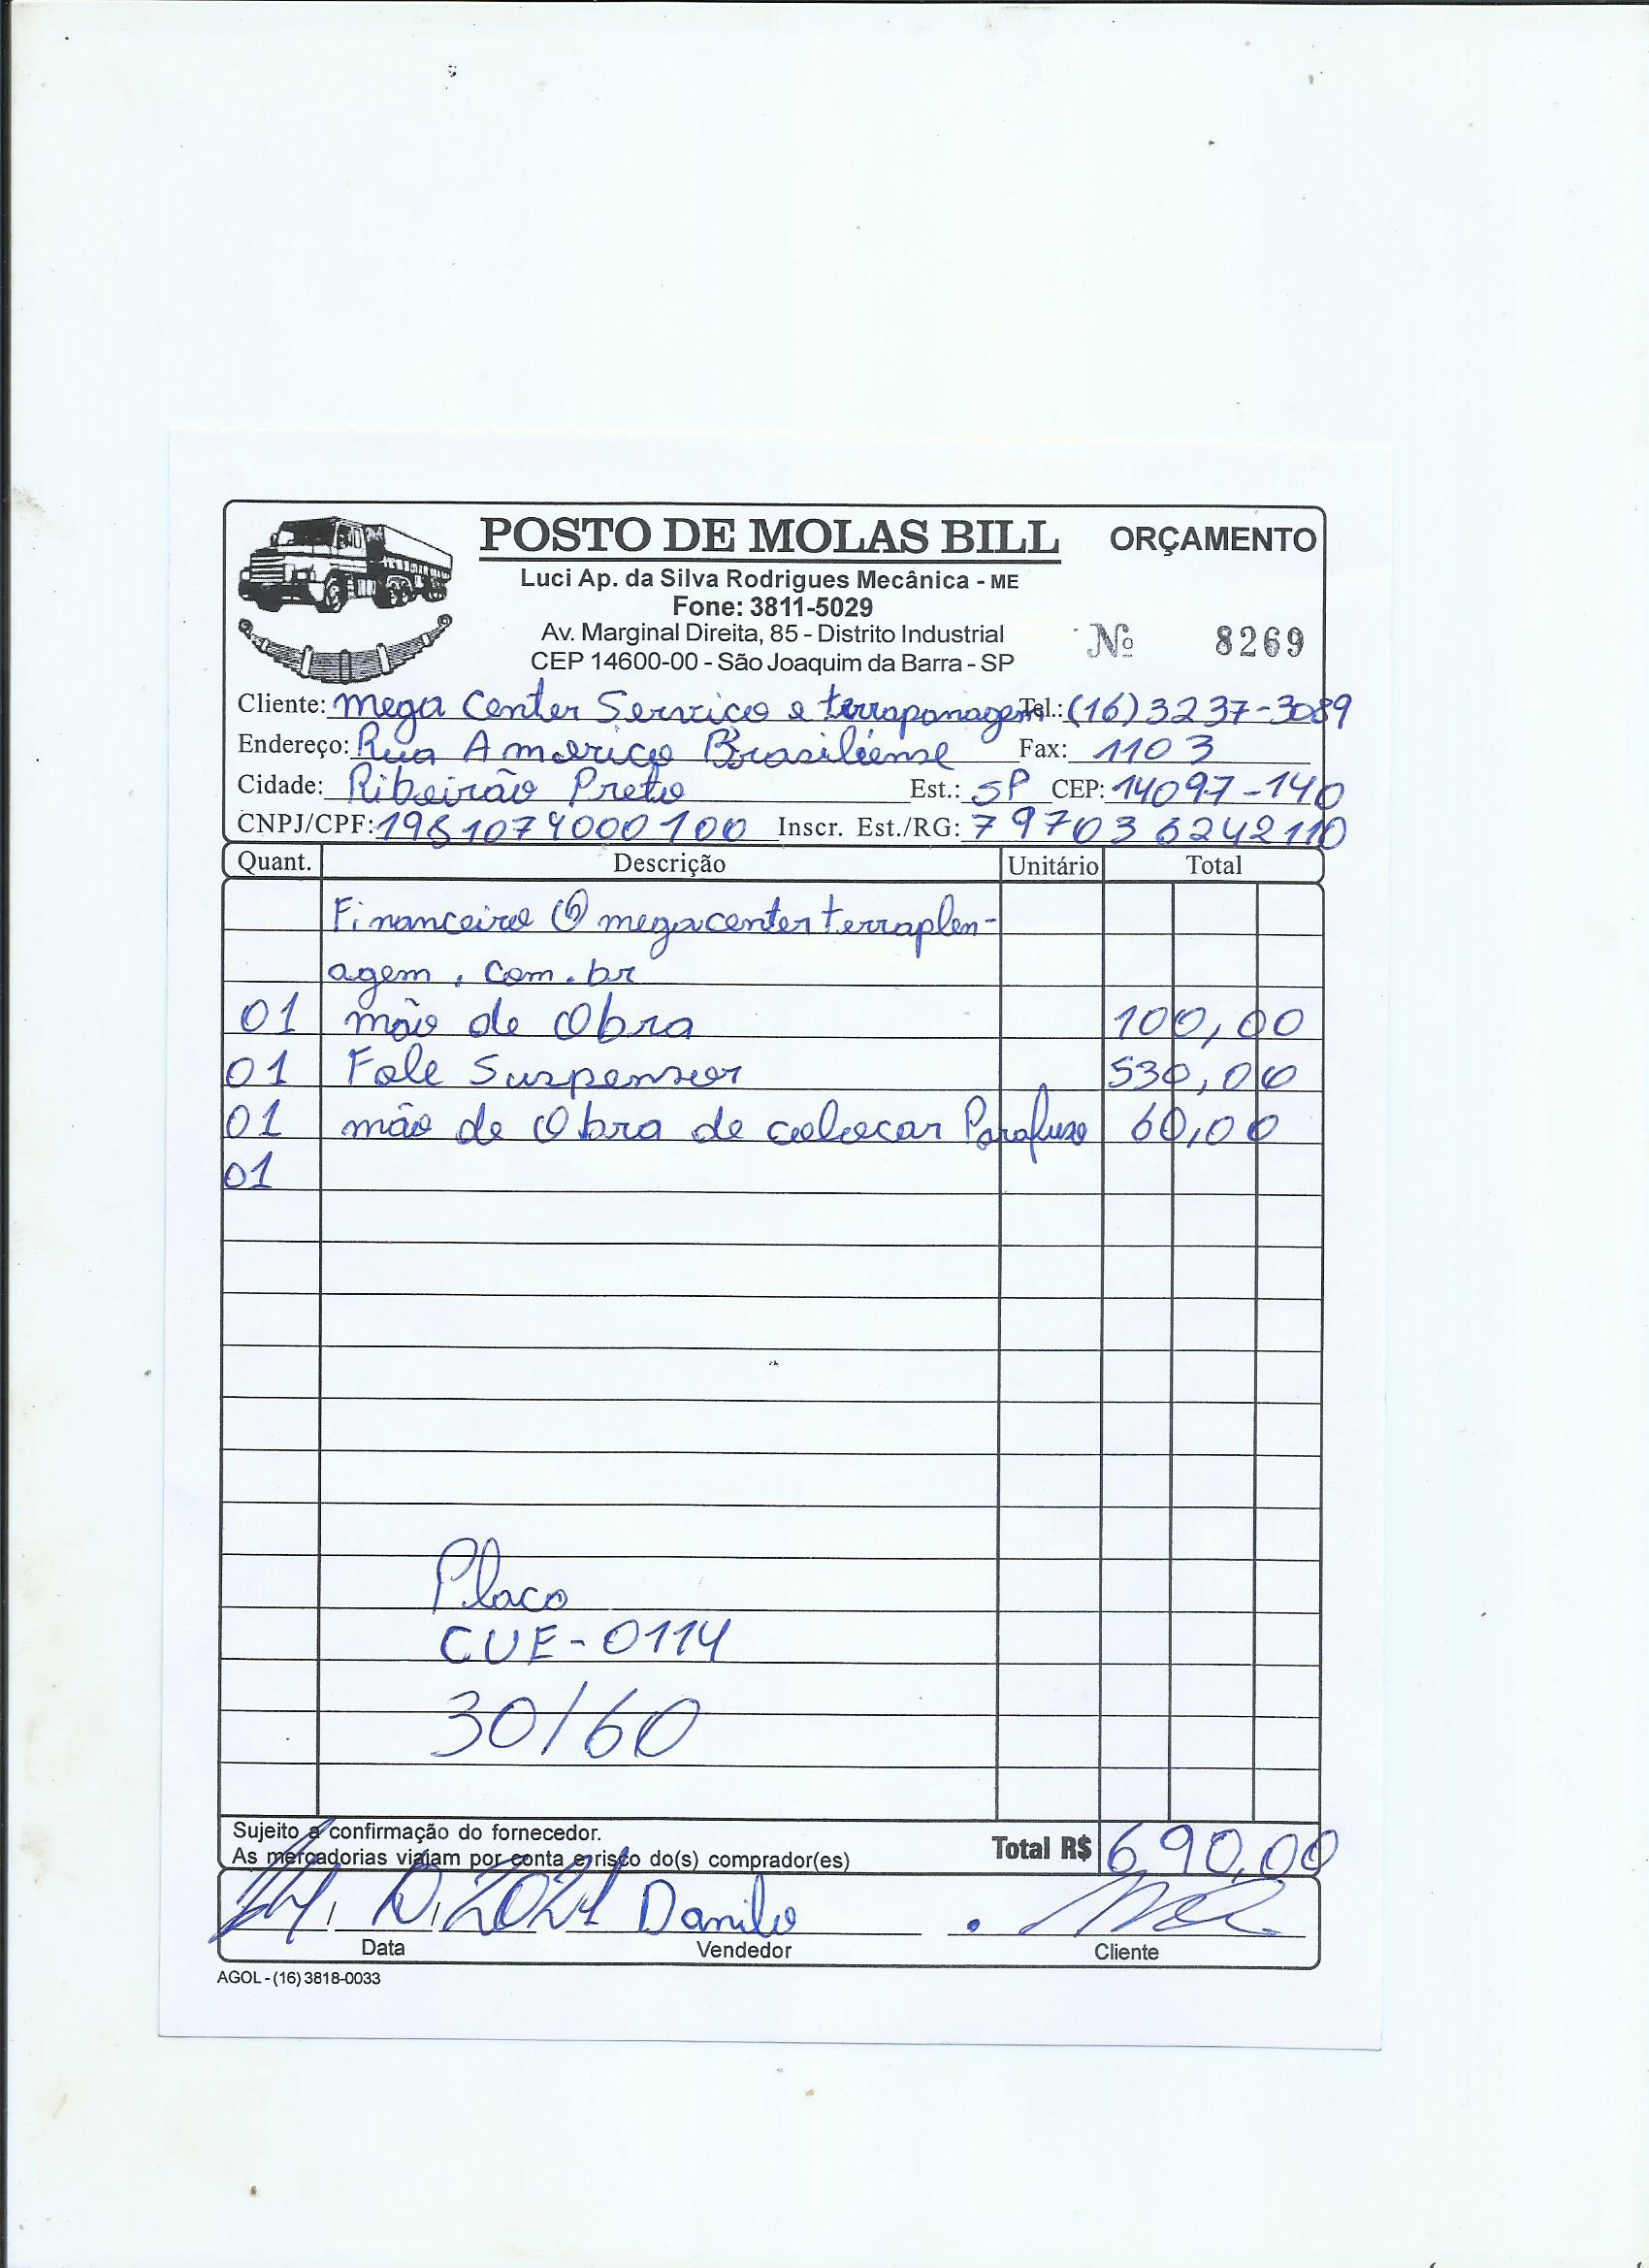 POSTO DE MOLAS BILL
ORÇAMENTO
Luci Ap. da Silva Rodrigues Mecânica - ME
Fone: 3811-5029
Av. Marginal Direita, 85 - Distrito Industrial
CEP 14600-00 - São Joaquim da Barra - SP
Nº 8269
Cliente: Mega Center Servico e terraponagem Tel.: (16) 3237-3089
Endereço: Rua Americo Brasiliense Fax: 1103
Cidade: Ribeirão Preto Est.: SP CEP: 14097-140
CNPJ/CPF: 1981074000100 Inscr. Est./RG: 797036242110
Quant. Descrição Unitário Total
Financeiro @ megacenterterraplen-
agem . com . br
01 mão de Obra 100,00
01 Fole Suspensor 530,00
01 mão de Obra de colocar Parafuso 60,00
01
Placa
CUE-0114
30/60
Sujeito a confirmação do fornecedor.
As mercadorias viajam por conta e risco do(s) comprador(es)
Total R$ 690,00
2021 Danilo
Data Vendedor Cliente
AGOL - (16) 3818-0033